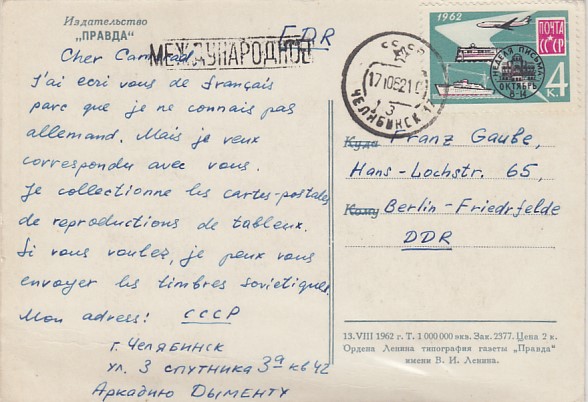 Издательство
"ПРАВДА"
FDR
МЕЖДУНАРОДНОЕ
Cher Camarad
J'ai ecri vous de français
parc que je ne connais pas
allemand. Mais je veux
correspondu avec vous.
Je collectionne les cartes-postales
de reproductions de tableux.
Si vous voulez, je peux vous
envoyer les timbres sovietiques.
Mon adress: СССР
г. ЧЕЛЯБИНСК
ул. 3 СПУТНИКА 39 кв 42
Аркадию Дыменту
1962
ПОЧТА
СССР
НЕДЕЛЯ ПИСЬМА
ОКТЯБРЬ
4 К.
СССР
ЧЕЛЯБИНСК
Куда Franz Gauße,
Hans-Lochstr. 65,
Кому Berlin-Friedrfelde
DDR
13.VIII 1962 г. Т. 1 000 000 экз. Зак. 2377. Цена 2 к.
Ордена Ленина типография газеты „Правда"
имени В. И. Ленина.